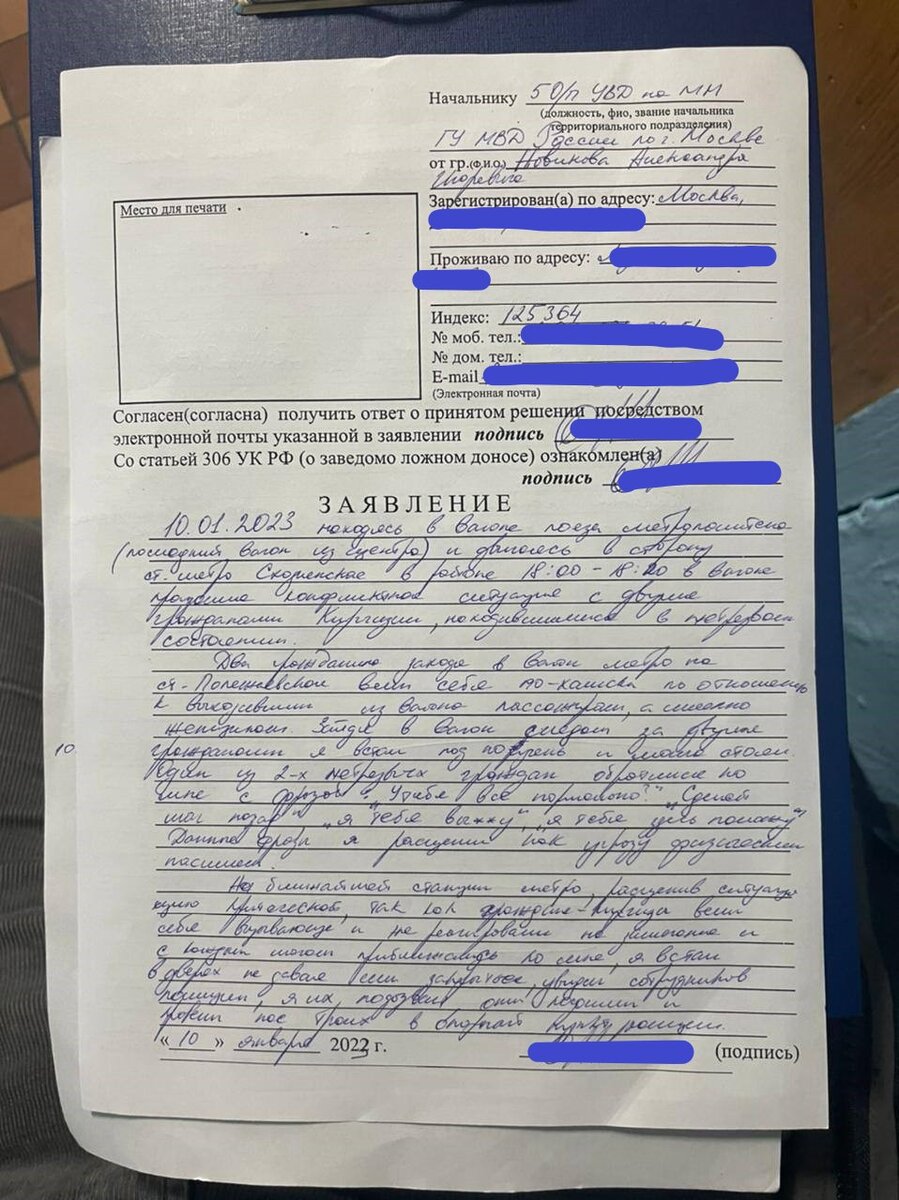 Начальнику 5 О/П УВД по МН
(должность, фио, звание начальника
территориального подразделения)
ГУ МВД России по г. Москве
от гр.(Ф.И.О.) Новикова Александра
Игоревича
Место для печати
Зарегистрирован(а) по адресу: Москва,
Проживаю по адресу:
Индекс: 125364
№ моб. тел.:
№ дом. тел.:
E-mail
(Электронная почта)
Согласен(согласна) получить ответ о принятом решении посредством
электронной почты указанной в заявлении подпись
Со статьей 306 УК РФ (о заведомо ложном доносе) ознакомлен(а)
подпись
ЗАЯВЛЕНИЕ
10.01.2023 находясь в вагоне поезда метрополитена
(последний вагон из центра) и двигаясь в сторону
ст. метро Сходненская в районе 18:00 - 18:20 в вагоне
произошла конфликтная ситуация с двумя
гражданами Киргизии, находившимися в нетрезвом
состоянии.
Два гражданина заходя в вагон метро на
ст. Полежаевской вели себя по-хамски по отношению
к выходившим из вагона пассажирам, а именно
женщинам. Зайдя в вагон следом за двумя
10.
гражданами я встал под поручень и молча стоял.
Один из 2-х нетрезвых граждан обратился ко
мне с фразой: "У тебя все нормально?" "Сделай
шаг назад" "я тебя выжму", "я тебя здесь поломаю"
Данные фразы я расценил как угрозу физической
На ближайшей станции метро, расценив ситуа-
цию так как граждане-киргизы вели
себя вызывающе и не реагировали на замечание и
с каждым шагом приближались ко мне, я встал
в дверях не давая им закрыться, увидев сотрудников
полиции, я их подозвал они подошли и
нас троих в опорный полиции.
"10" января 2023 г. (подпись)